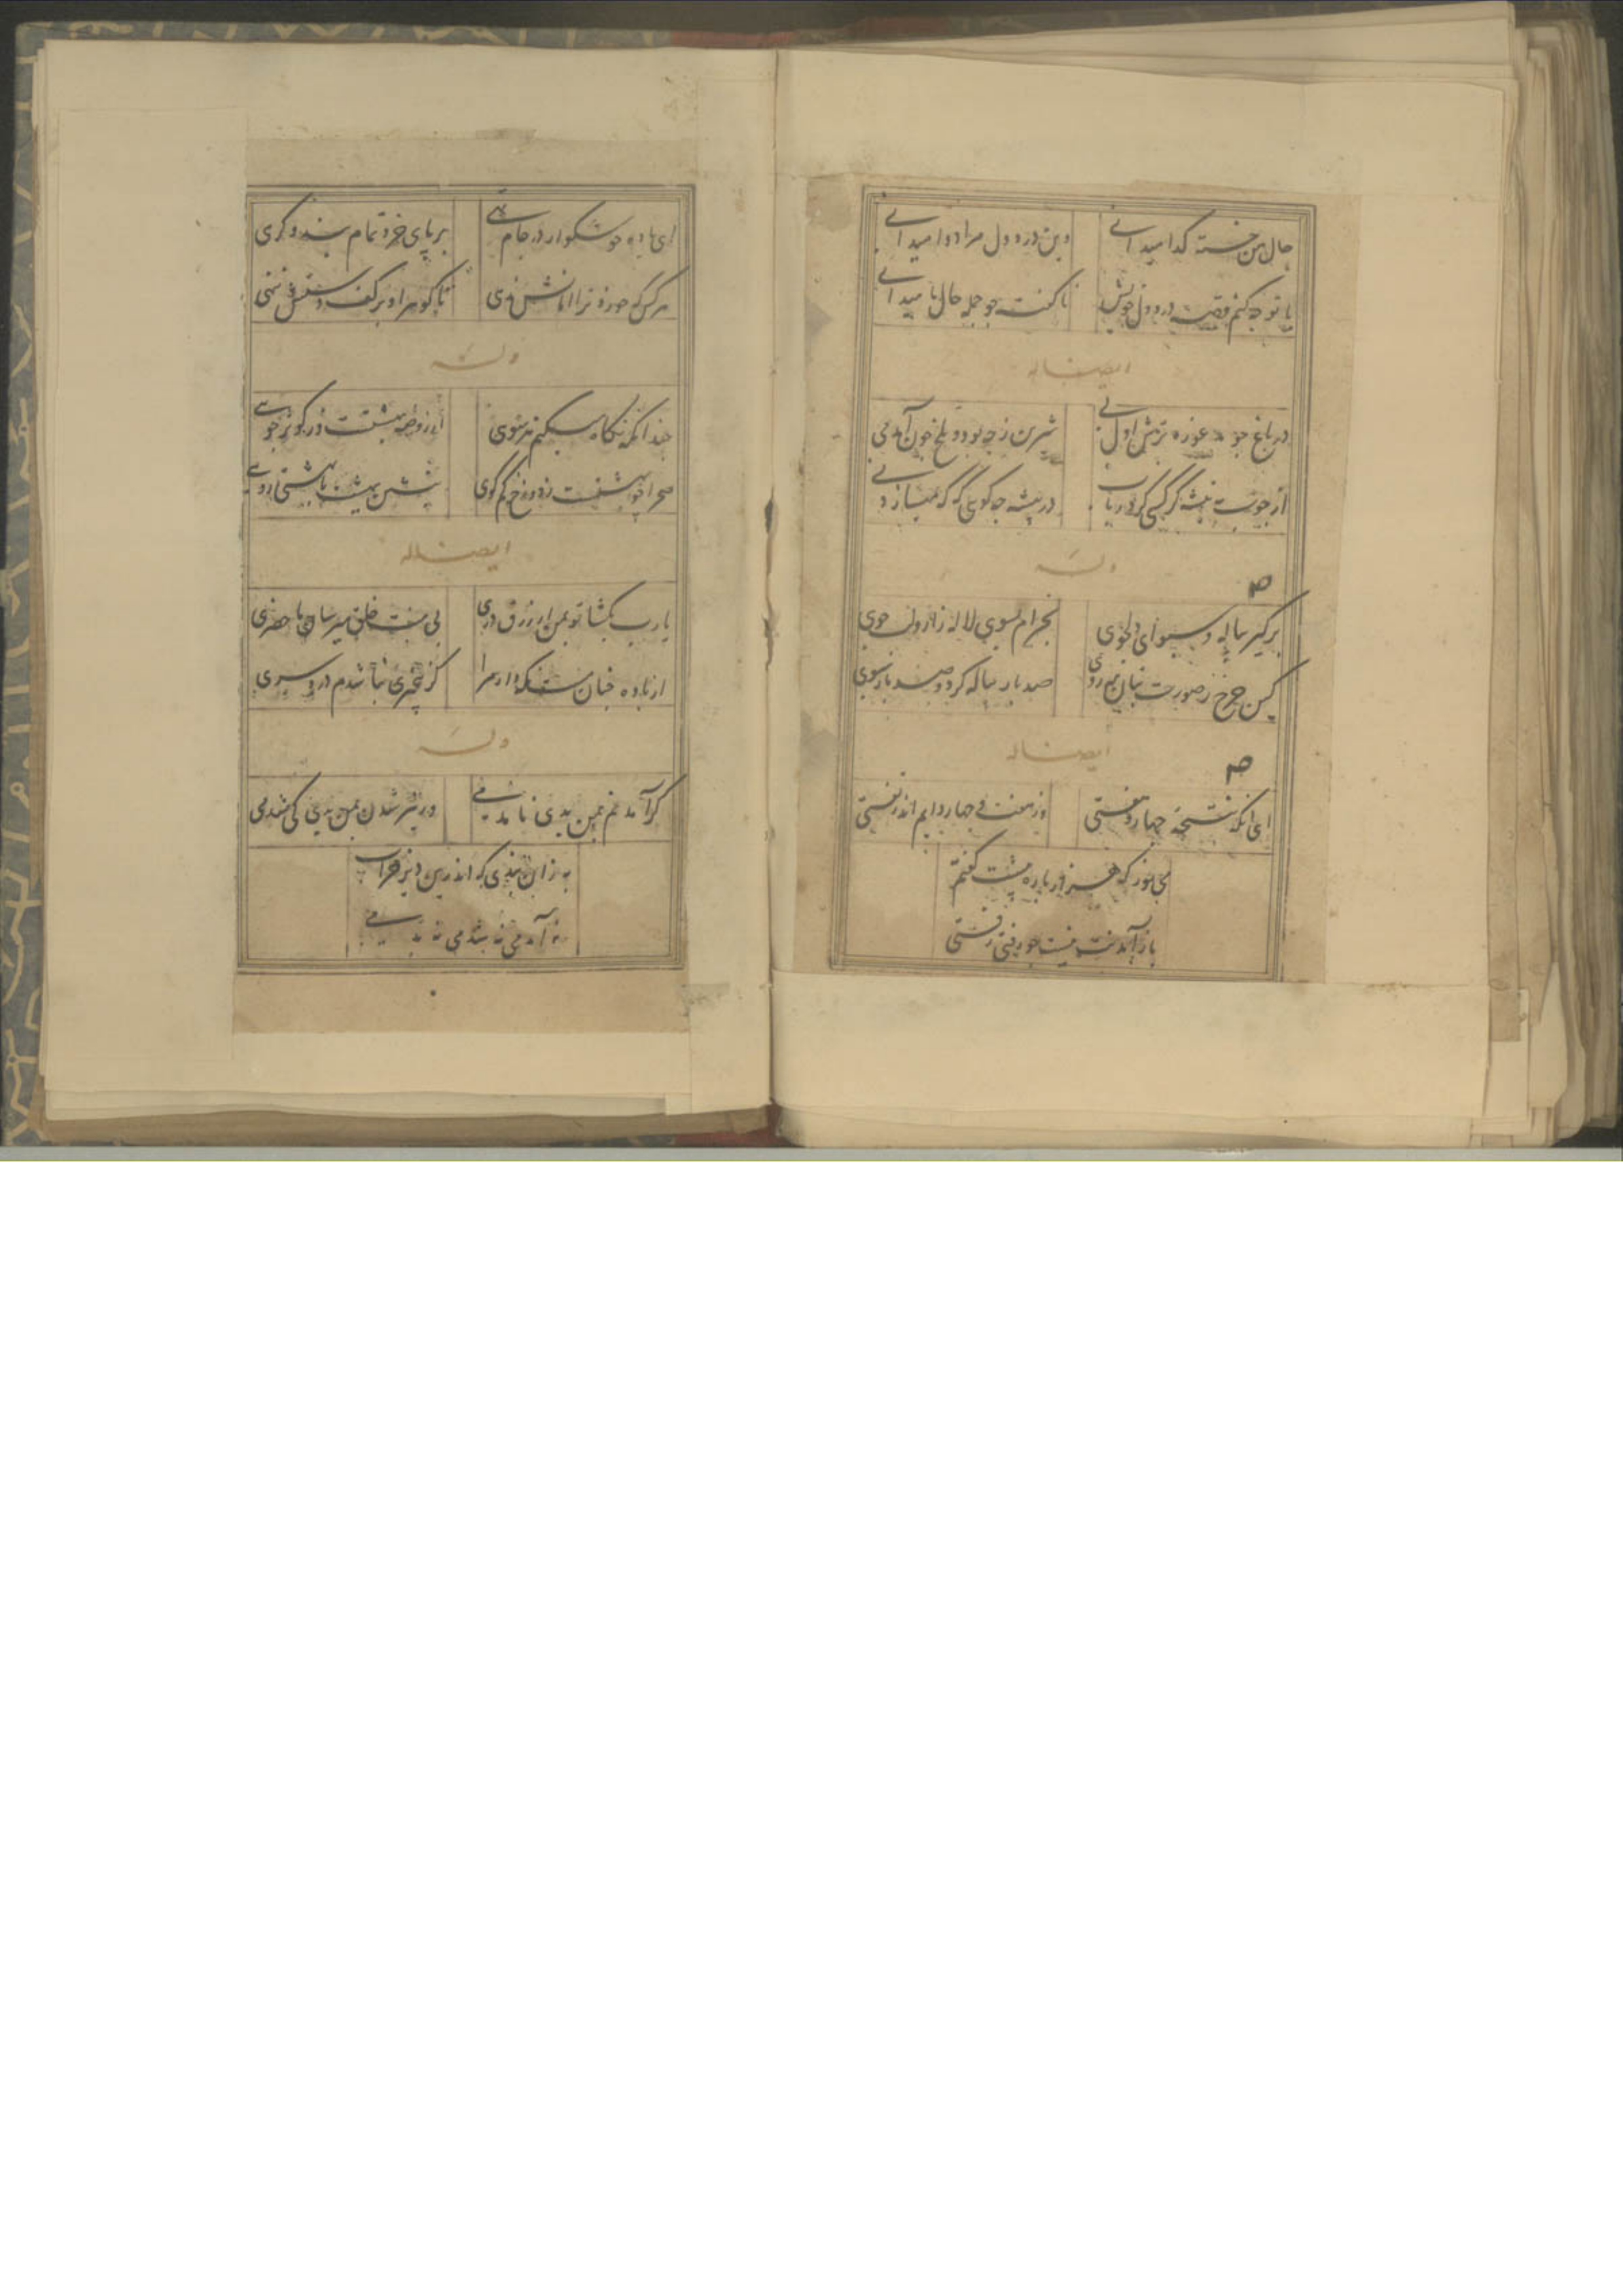 حال من خسته گدا میدانی
وین درد دل مرا دوا میدانی
با تو چه کنم قصه درد دل خویش
ناگفته چو جمله حال ما میدانی
ایضا له
در باغ چو بد غوره ترش اول
شیرین ز چه بود و تلخ چون آمد می
از چوب به تیشه گر کسی کرد رباب
در تیشه چه گوئی که که میسازد نی
وله
برگیر پیاله و سبو ای دلجوی
بخرام بسوی لاله زار و لب جوی
کین چرخ ز صورت بتان مه روی
صد بار پیاله کرد و صد بار سبوی
ایضا له
ای آنکه نتیجه چهار و هفتی
وز هفت و چهار دایم اندر تفتی
می خور که هزار باره بیشت گفتم
باز آمدنت نیست چو رفتی رفتی
ای باده خوشگوار در جام بهی
بر پای خرد تمام بند و گرهی
هر کس که خورد ترا امانش ندهی
تا گوهر او بر کف دستش ننهی
وله
چندانکه نگاه میکنم هر سوی
از روضه بهشتست وز کوثر جوی
صحرا چو بهشتست ز دوزخ کم گوی
بنشین ببهشت با بهشتی روی
ایضا له
یا رب بگشا تو بمن از رزق دری
بی منت خلق میرسان ما حضری
از باده چنان مست نگه دار مرا
کز بیخبری نباشدم درد سری
وله
گر آمدنم بمن بدی نامدمی
ور نیز شدن بمن بدی کی شدمی
به زان نبدی که اندرین دیر خراب
نه آمدمی نه شدمی نه بدمی